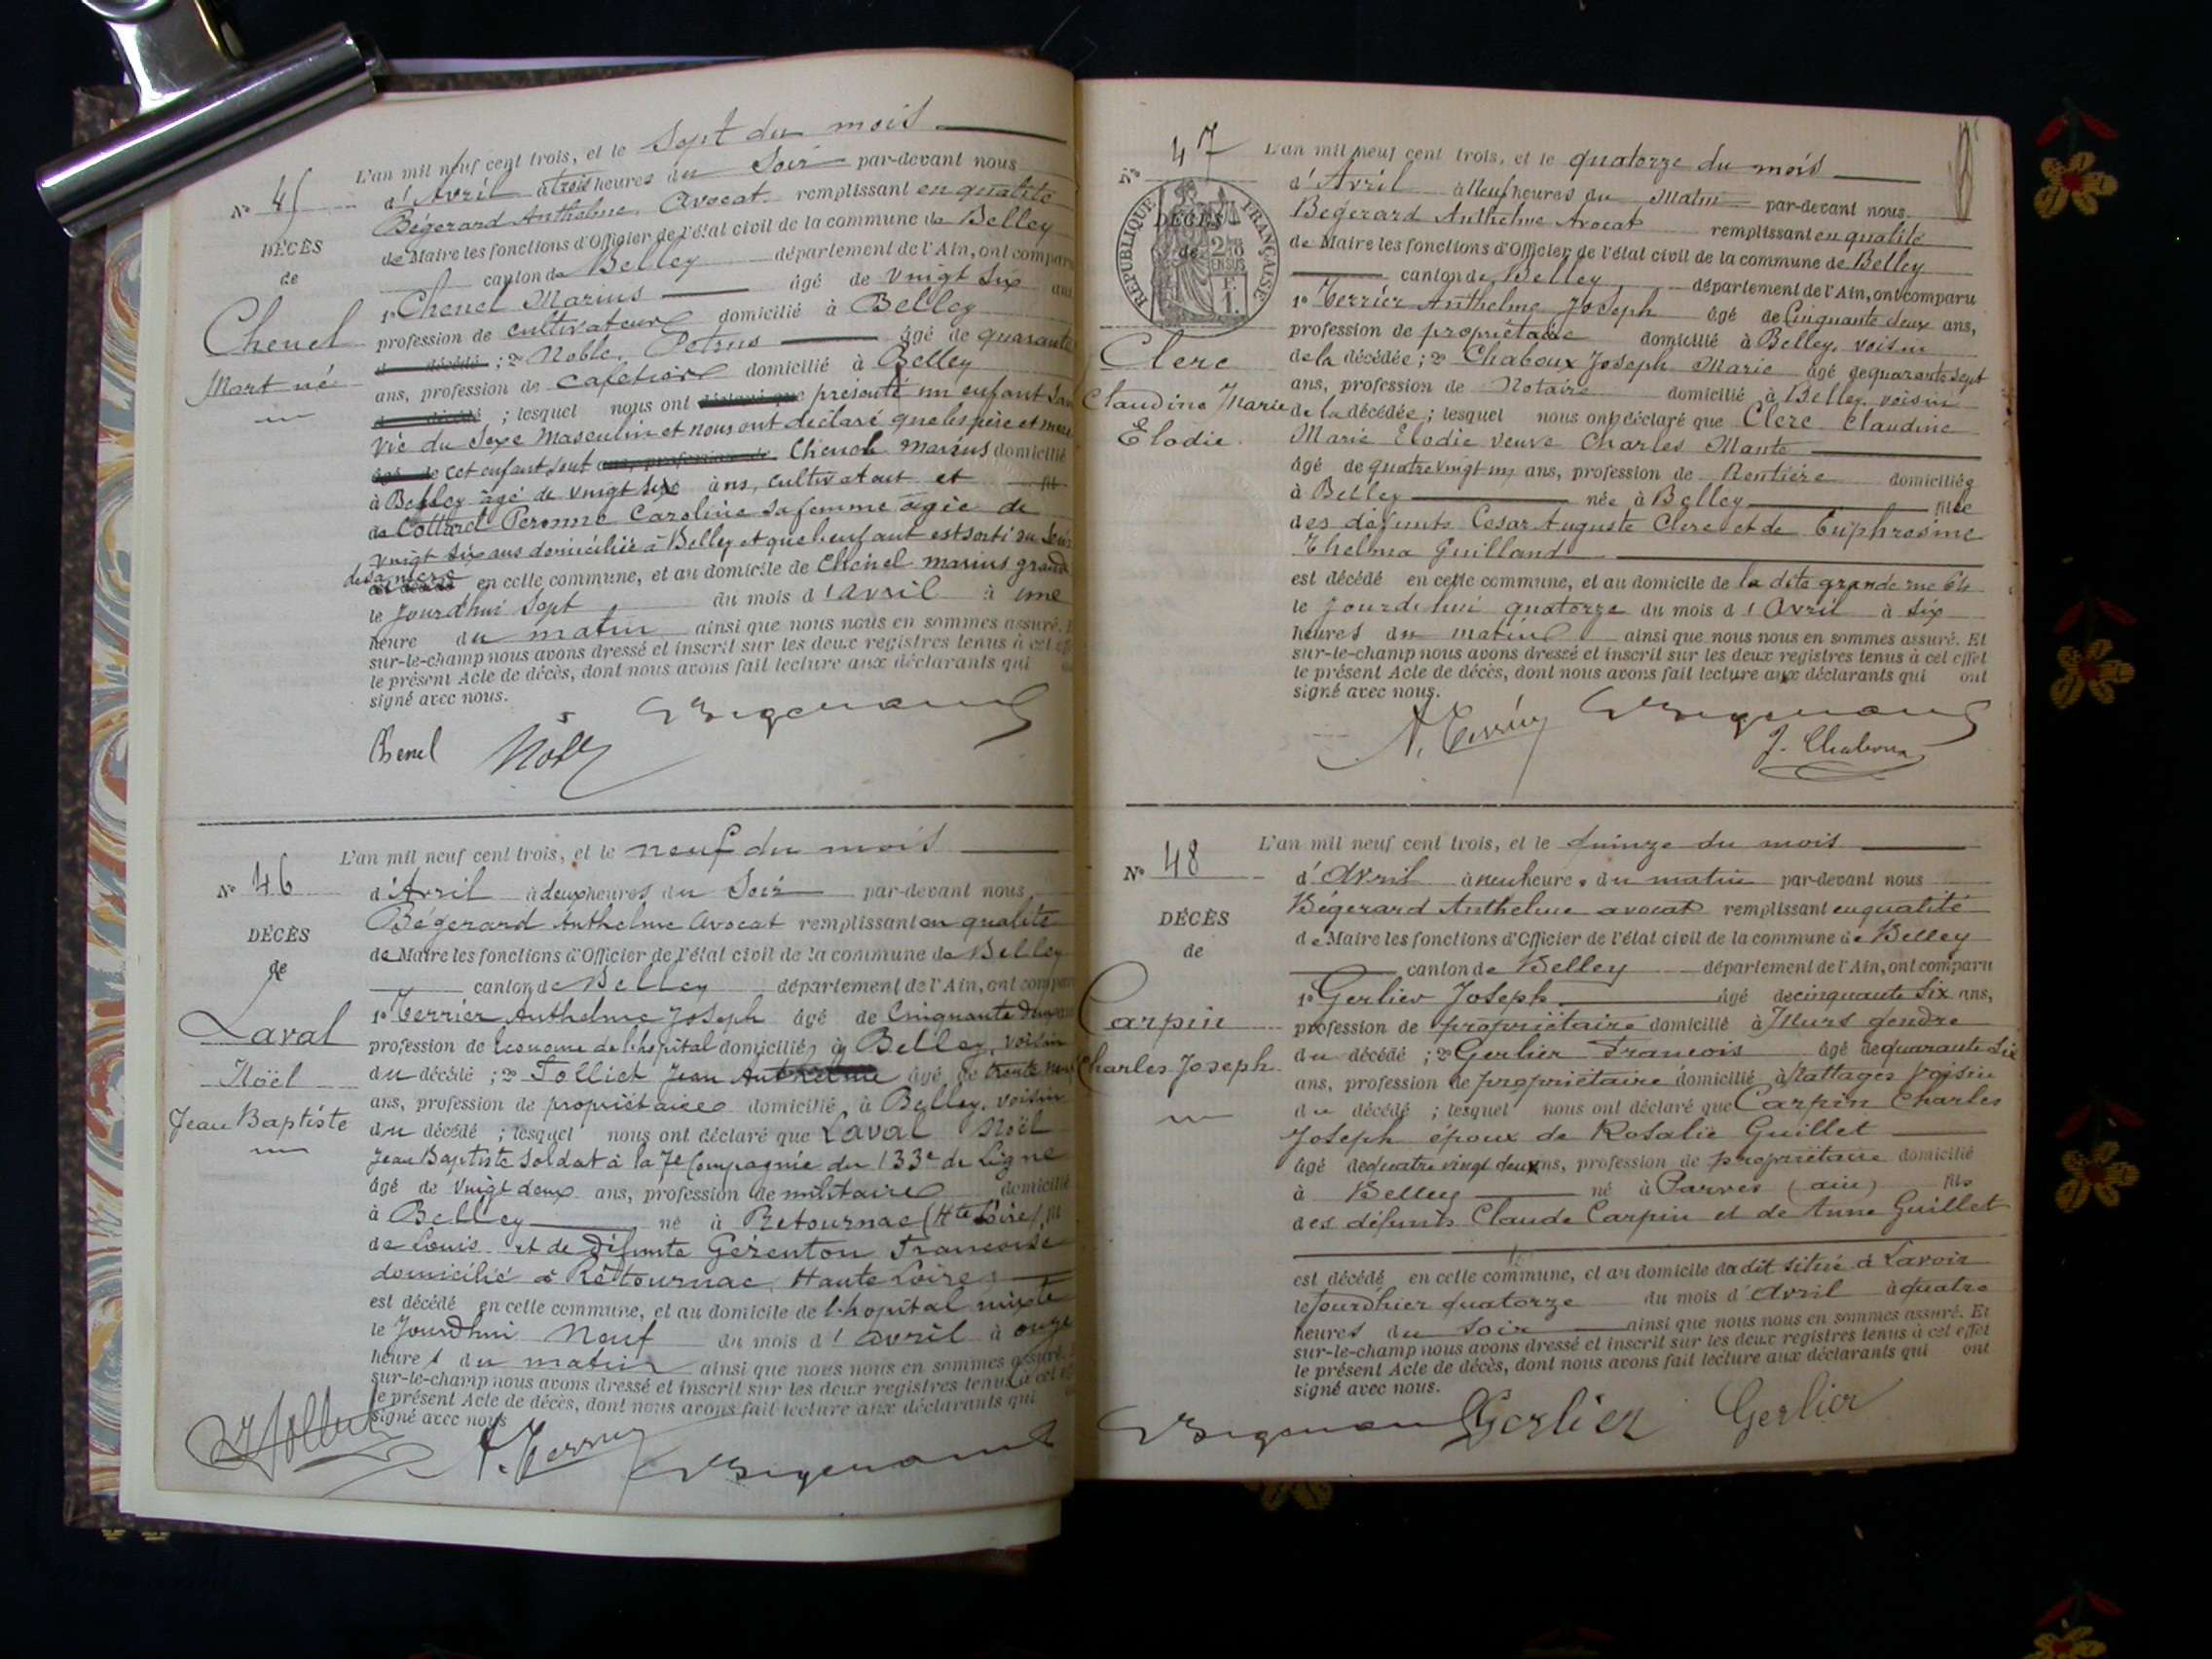 L'an mil neuf cent trois, et le Sept du mois
N° 45
d'Avril à trois heures du Soir par-devant nous
Bégerard Anthelme, Avocat remplissant en qualité
DÉCÈS
de Maire les fonctions d'Officier de l'état civil de la commune de Belley
de
canton de Belley département de l'Ain, ont comparu
Chenel
1° Chenel Marius âgé de Vingt Six ans
profession de cultivateur domicilié à Belley
Mort né
; 2° Noble, Petrus âgé de quarante
ans, profession de cafetier domicilié à Belley
; lesquel nous ont présenté un enfant San
vie du Sexe Masculin et nous ont déclaré que les père et mère
de cet enfant sont Chenel Marius domicilié
à Belley âgé de vingt six ans, cultivateur et
de Collard Peronne Caroline sa femme âgée de
vingt six ans domiciliée à Belley et que l'enfant est sorti du Sein
de sa mère en cette commune, et au domicile de Chenel marius grand
le Jourd'hui Sept du mois d'avril à une
heure du matin ainsi que nous nous en sommes assuré.
sur-le-champ nous avons dressé et inscrit sur les deux registres tenus à cet
le présent Acte de décès, dont nous avons fait lecture aux déclarants qui
signé avec nous.
Chenel
L'an mil neuf cent trois, et le neuf du mois
N° 46
d'Avril à deux heures du Soir par-devant nous
Bégerard Anthelme Avocat remplissant en qualité
DÉCÈS
de Maire les fonctions d'Officier de l'état civil de la commune de Belley
de
canton de Belley département de l'Ain, ont comparu
Laval
1° Terrier Anthelme Joseph âgé de Cinquante deux
profession de économe de l'hopital domicilié à Belley, voisin
Noël
du décédé ; 2° Folliet Jean Anthelme âgé de trente neuf
ans, profession de propriétaire domicilié à Belley, voisin
Jean Baptiste
du décédé ; lesquel nous ont déclaré que Laval Noël
Jean Baptiste Soldat à la 7e Compagnie du 133e de Ligne
âgé de Vingt deux ans, profession de militaire domicilié
à Belley né à Retournac (Hte Loire) fil
de Louis et de Défunte Gérenton Francoise
domicilié à Rétournac, Haute Loire
est décédé en cette commune, et au domicile de l'hopital mixte
le Jourd'hui Neuf du mois d'avril à onze
heures du matin ainsi que nous nous en sommes assuré.
sur-le-champ nous avons dressé et inscrit sur les deux registres tenus à cet
le présent Acte de décès, dont nous avons fait lecture aux déclarants qui
signé avec nous
L'an mil neuf cent trois, et le quatorze du mois
N° 47
d'Avril à Neuf heures du Matin par-devant nous
Bégerard Anthelme Avocat remplissant en qualité
RÉPUBLIQUE FRANÇAISE
DÉCÈS
de Maire les fonctions d'Officier de l'état civil de la commune de Belley
de
canton de Belley département de l'Ain, ont comparu
1° Terrier Anthelme Joseph âgé de Cinquante deux ans,
profession de propriétaire domicilié à Belley, voisin
Clerc
de la décédée ; 2° Chaboux Joseph Marie âgé de quarante Sept
ans, profession de Notaire domicilié à Belley, voisin
Claudine Marie
de la décédée ; lesquel nous ont déclaré que Clerc Claudine
Élodie
Marie Elodie veuve Charles Mante
âgé de quatre vingt un ans, profession de Rentière domiciliée
à Belley née à Belley fille
des défunts Cesar Auguste Clerc et de Euphrosine
Thelma Guilland
est décédé en cette commune, et au domicile de la dite grande rue 64
le Jourd'hui quatorze du mois d'Avril à Six
heures du matin ainsi que nous nous en sommes assuré. Et
sur-le-champ nous avons dressé et inscrit sur les deux registres tenus à cet effet
le présent Acte de décès, dont nous avons fait lecture aux déclarants qui ont
signé avec nous.
J. Chaboux
L'an mil neuf cent trois, et le Quinze du mois
N° 48
d'Avril à neuf heures du matin par-devant nous
Bégerard Anthelme avocat remplissant en qualité
DÉCÈS
de Maire les fonctions d'Officier de l'état civil de la commune de Belley
de
canton de Belley département de l'Ain, ont comparu
1° Gerlier Joseph âgé de cinquante Six ans,
Carpin
profession de propriétaire domicilié à Murs gendre
du décédé ; 2° Gerlier Francois âgé de quarante Six
Charles Joseph
ans, profession de propriétaire domicilié à Nattages Voisin
du décédé ; lesquel nous ont déclaré que Carpin Charles
Joseph époux de Rosalie Guillet
âgé de quatre vingt deux ans, profession de propriétaire domicilié
à Belley né à Parves (ain) fils
des défunts Claude Carpin et de Anne Guillet
est décédé en cette commune, et au domicile du dit situé à Lavoir
le Jourd'hier quatorze du mois d'Avril à quatre
heures du Soir ainsi que nous nous en sommes assuré. Et
sur-le-champ nous avons dressé et inscrit sur les deux registres tenus à cet effet
le présent Acte de décès, dont nous avons fait lecture aux déclarants qui ont
signé avec nous.
Gerlier Gerlier